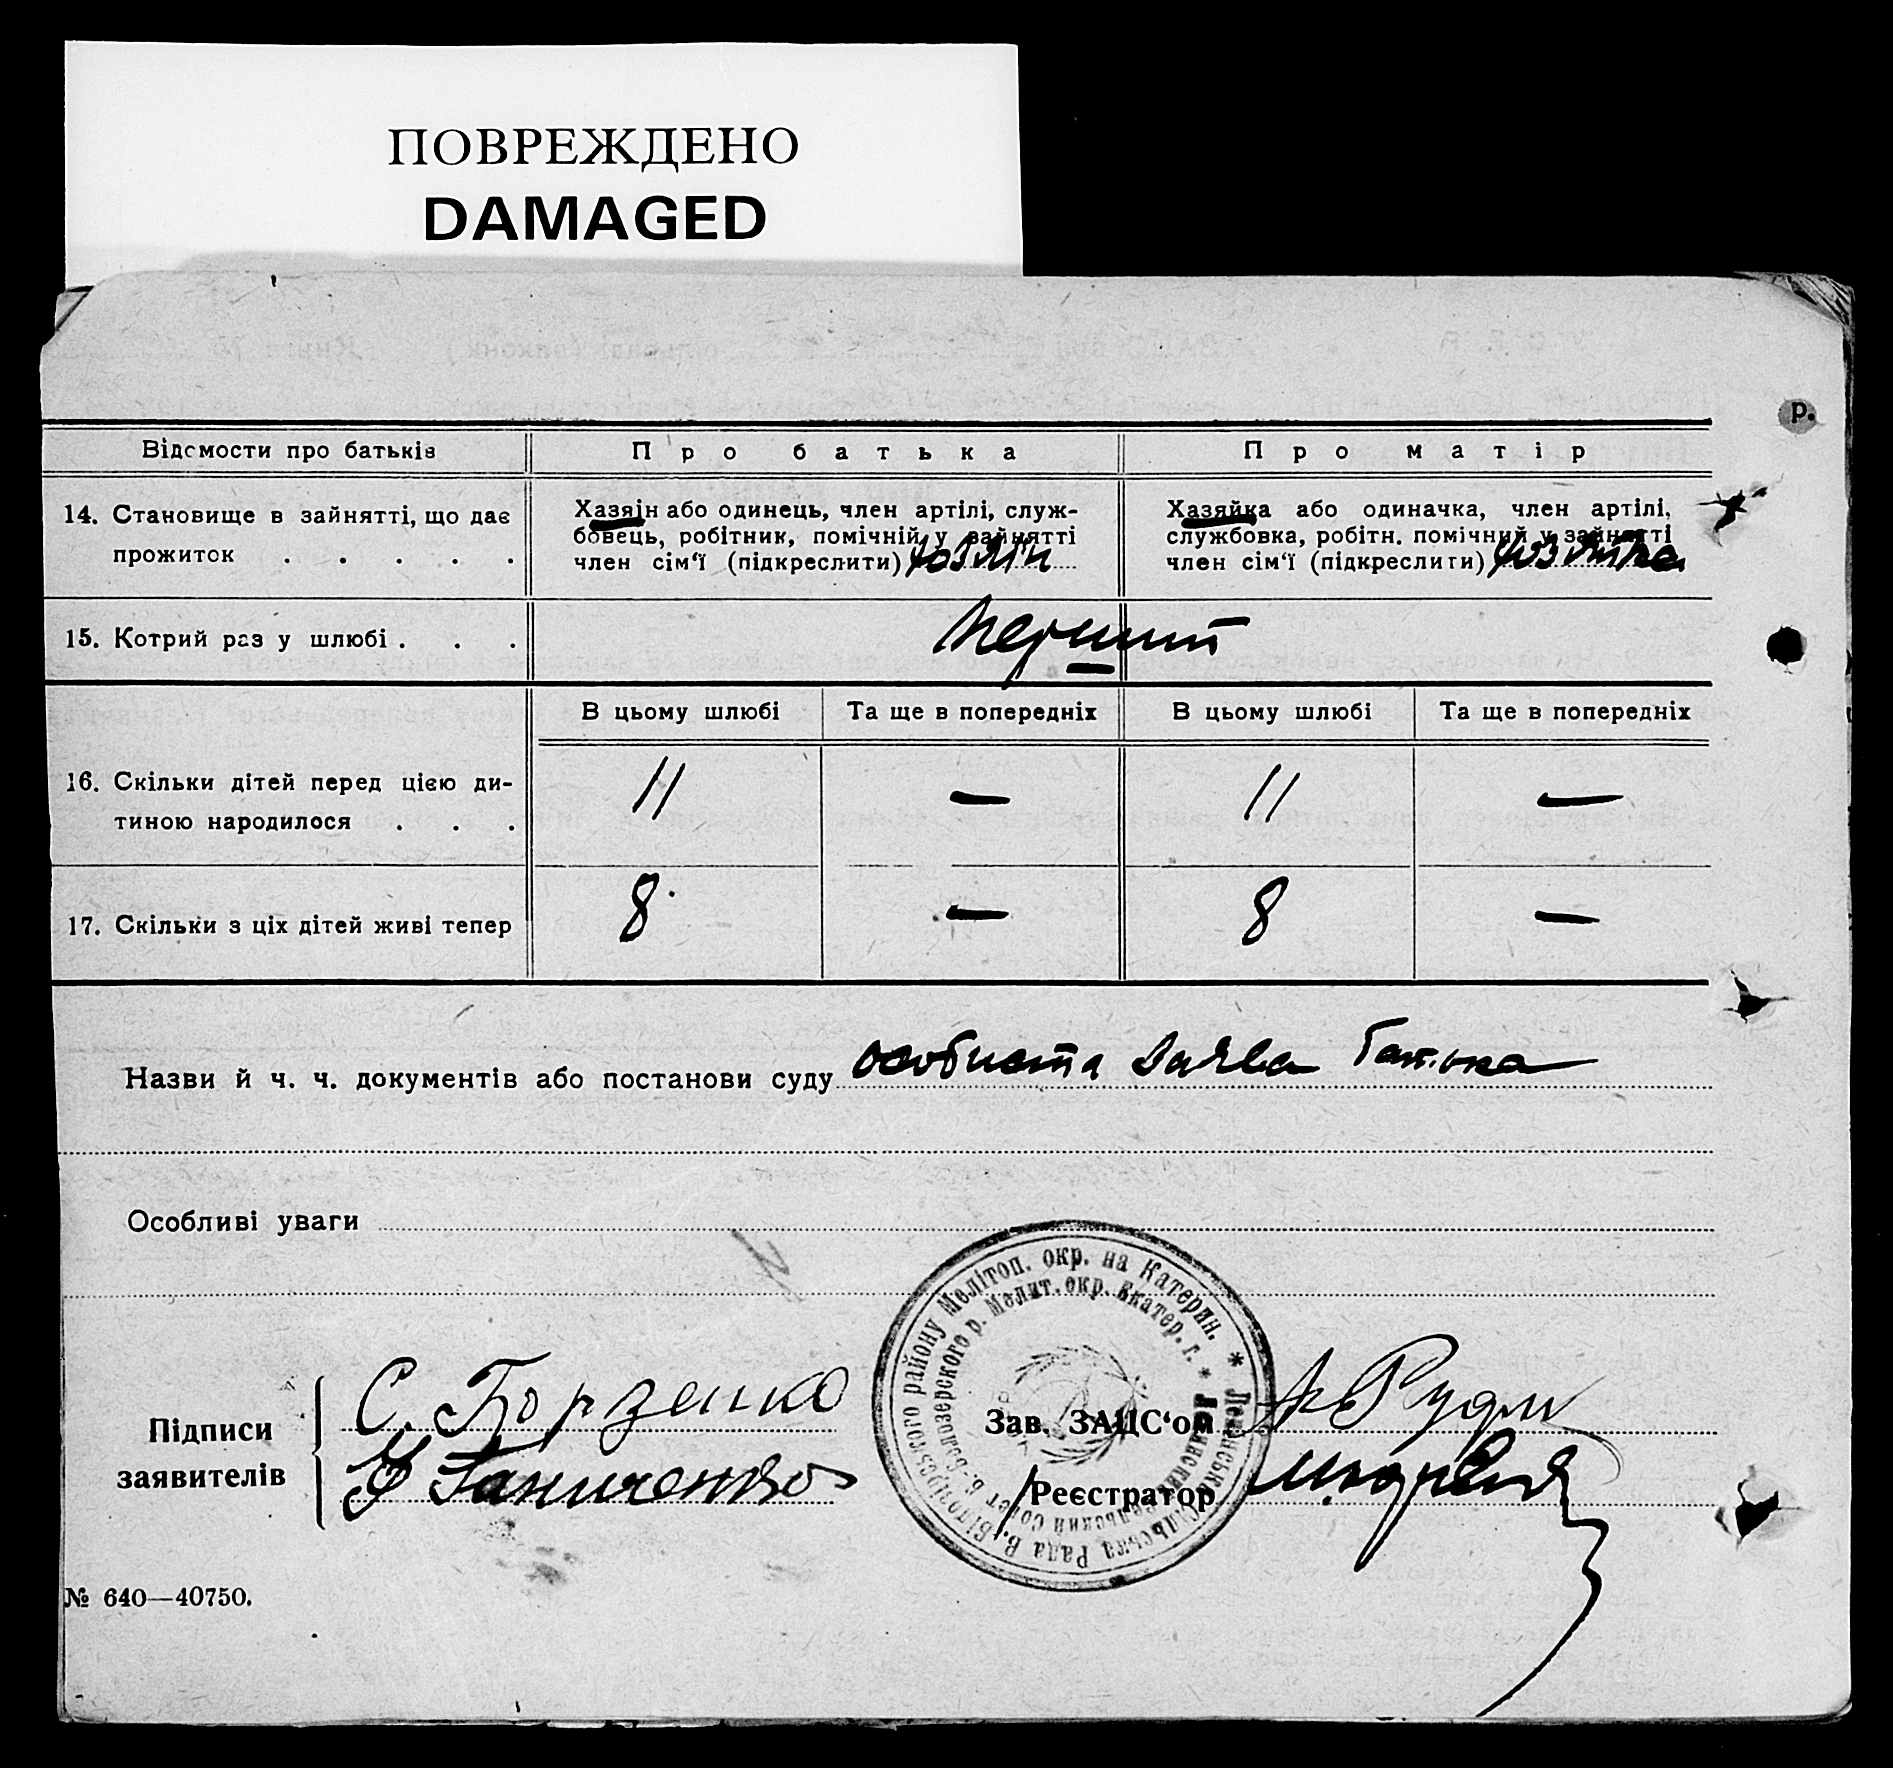 ПОВРЕЖДЕНО
DAMAGED
р.
Відомости про батьків
Про батька
Про матір
14. Становище в зайнятті, що дає
прожиток . . . . .
Хазяін або одинець, член артілі, служ-
бовець, робітник, помічній у зайнятті
член сім‘ї (підкреслити) хозяїн
Хазяйка або одиначка, член артілі,
службовка, робітн. помічний у зайнятті
член сім‘ї (підкреслити) хозяйка
15. Котрий раз у шлюбі . . .
перший
В цьому шлюбі
Та ще в попередніх
В цьому шлюбі
Та ще в попередніх
16. Скільки дітей перед цією ди-
тиною народилося . . .
11
—
11
—
17. Скільки з ціх дітей живі тепер
8
—
8
—
Назви й ч. ч. документів або постанови суду особиста заява батька
Особливі уваги
Підписи
заявителів
С. Борзенко
Ганиченко
Зав. ЗАЦС‘ом
Реєстратор
сільська Рада В. Білозірського району Мелітоп. окр. на Катерин. *
Б.-Белозерского р. Мелит. окр. Екатер. г. *
№ 640—40750.